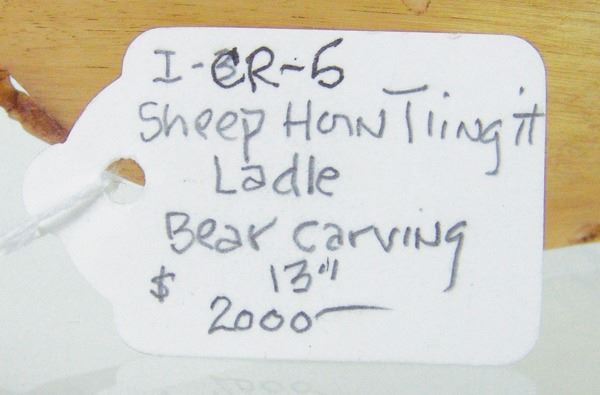 I-CR-5
Sheep Horn Tlingit
Ladle
Bear Carving
13"
$ 2000—